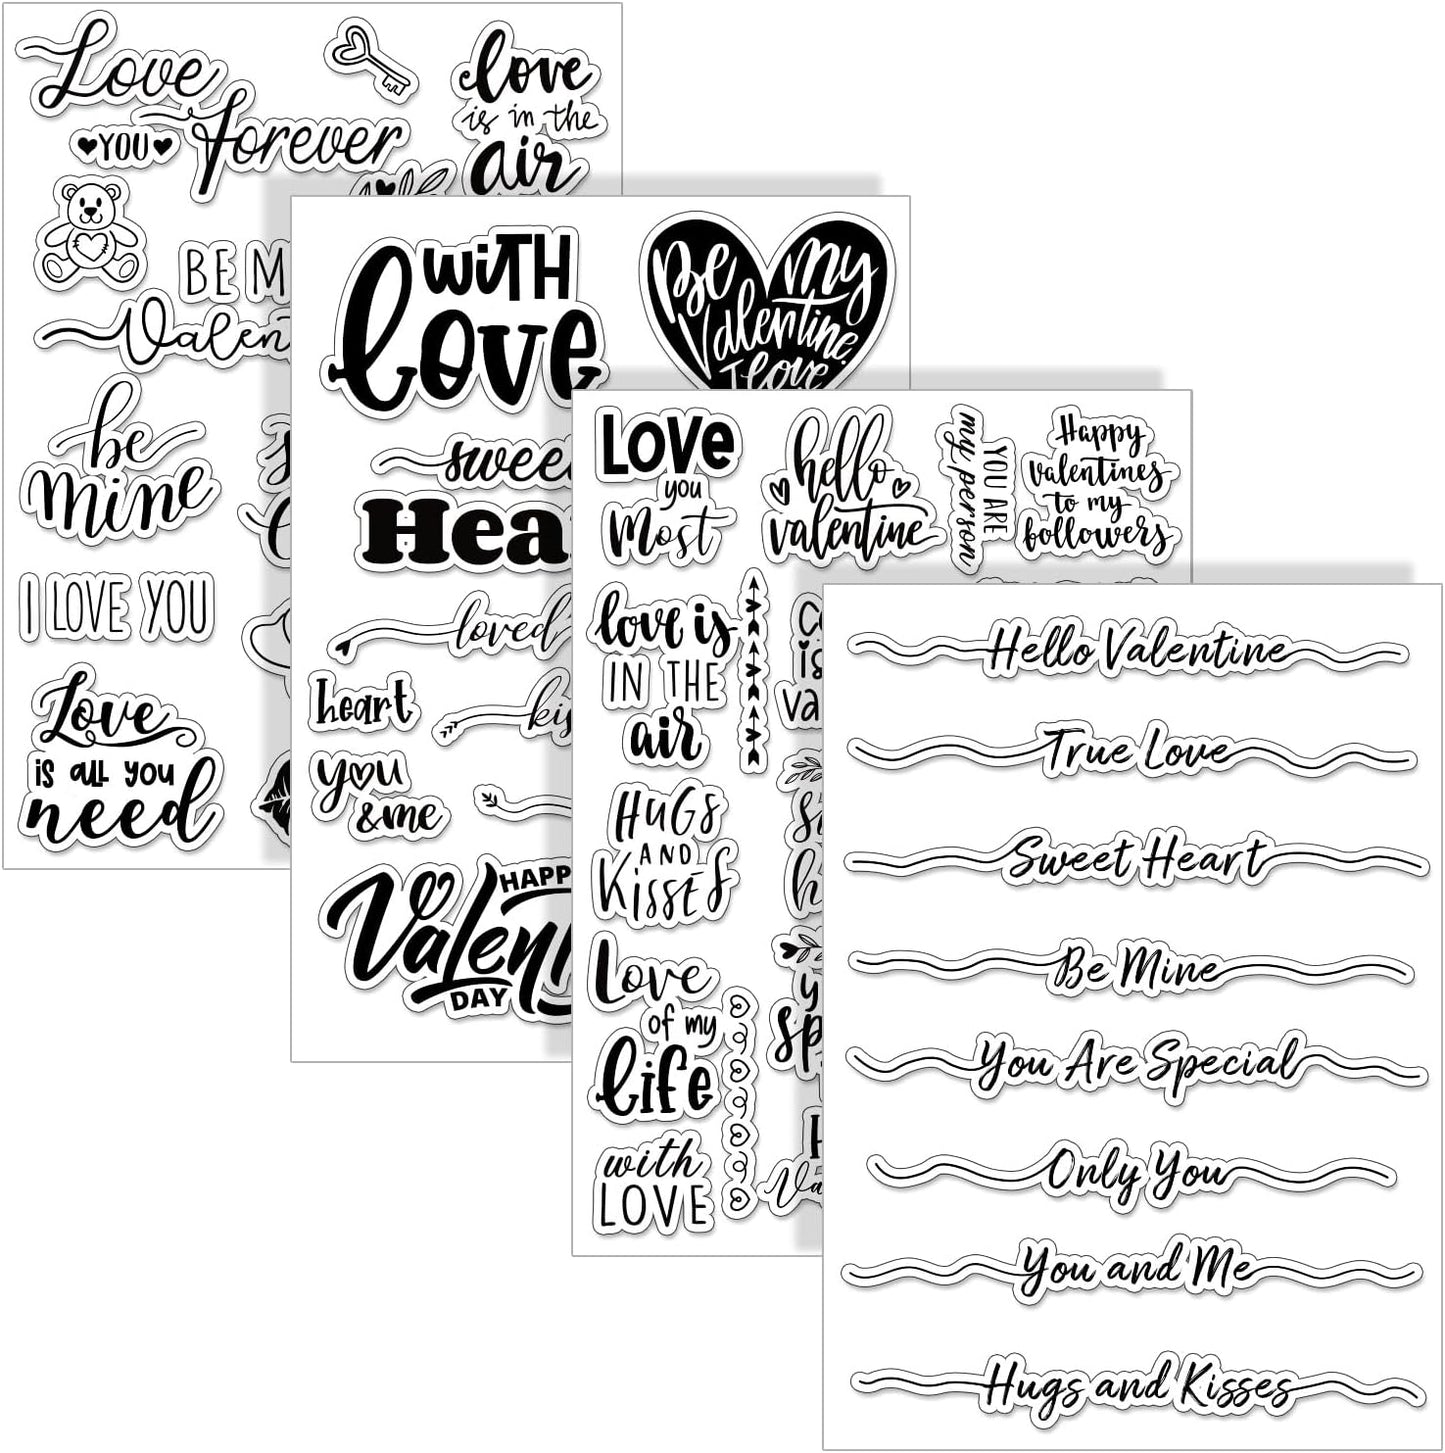 Love
forever
YOU
love
is in the
air
BE
Valen
be
mine
I LOVE YOU
Love
is all you
need
WiTH
love
Be my
Valentine.
I love
swee
Hea
loved
heart
kis
you
&me
HAPP
Valen
DAY
Love
you
Most
hello
valentine
YOU ARE
my person
Happy
valentines
to my
followers
love is
IN THE
air
HUGS
AND
KissES
Love
of my
life
with
LOVE
Hello Valentine
True Love
Sweet Heart
Be Mine
You Are Special
Only You
You and Me
Hugs and Kisses